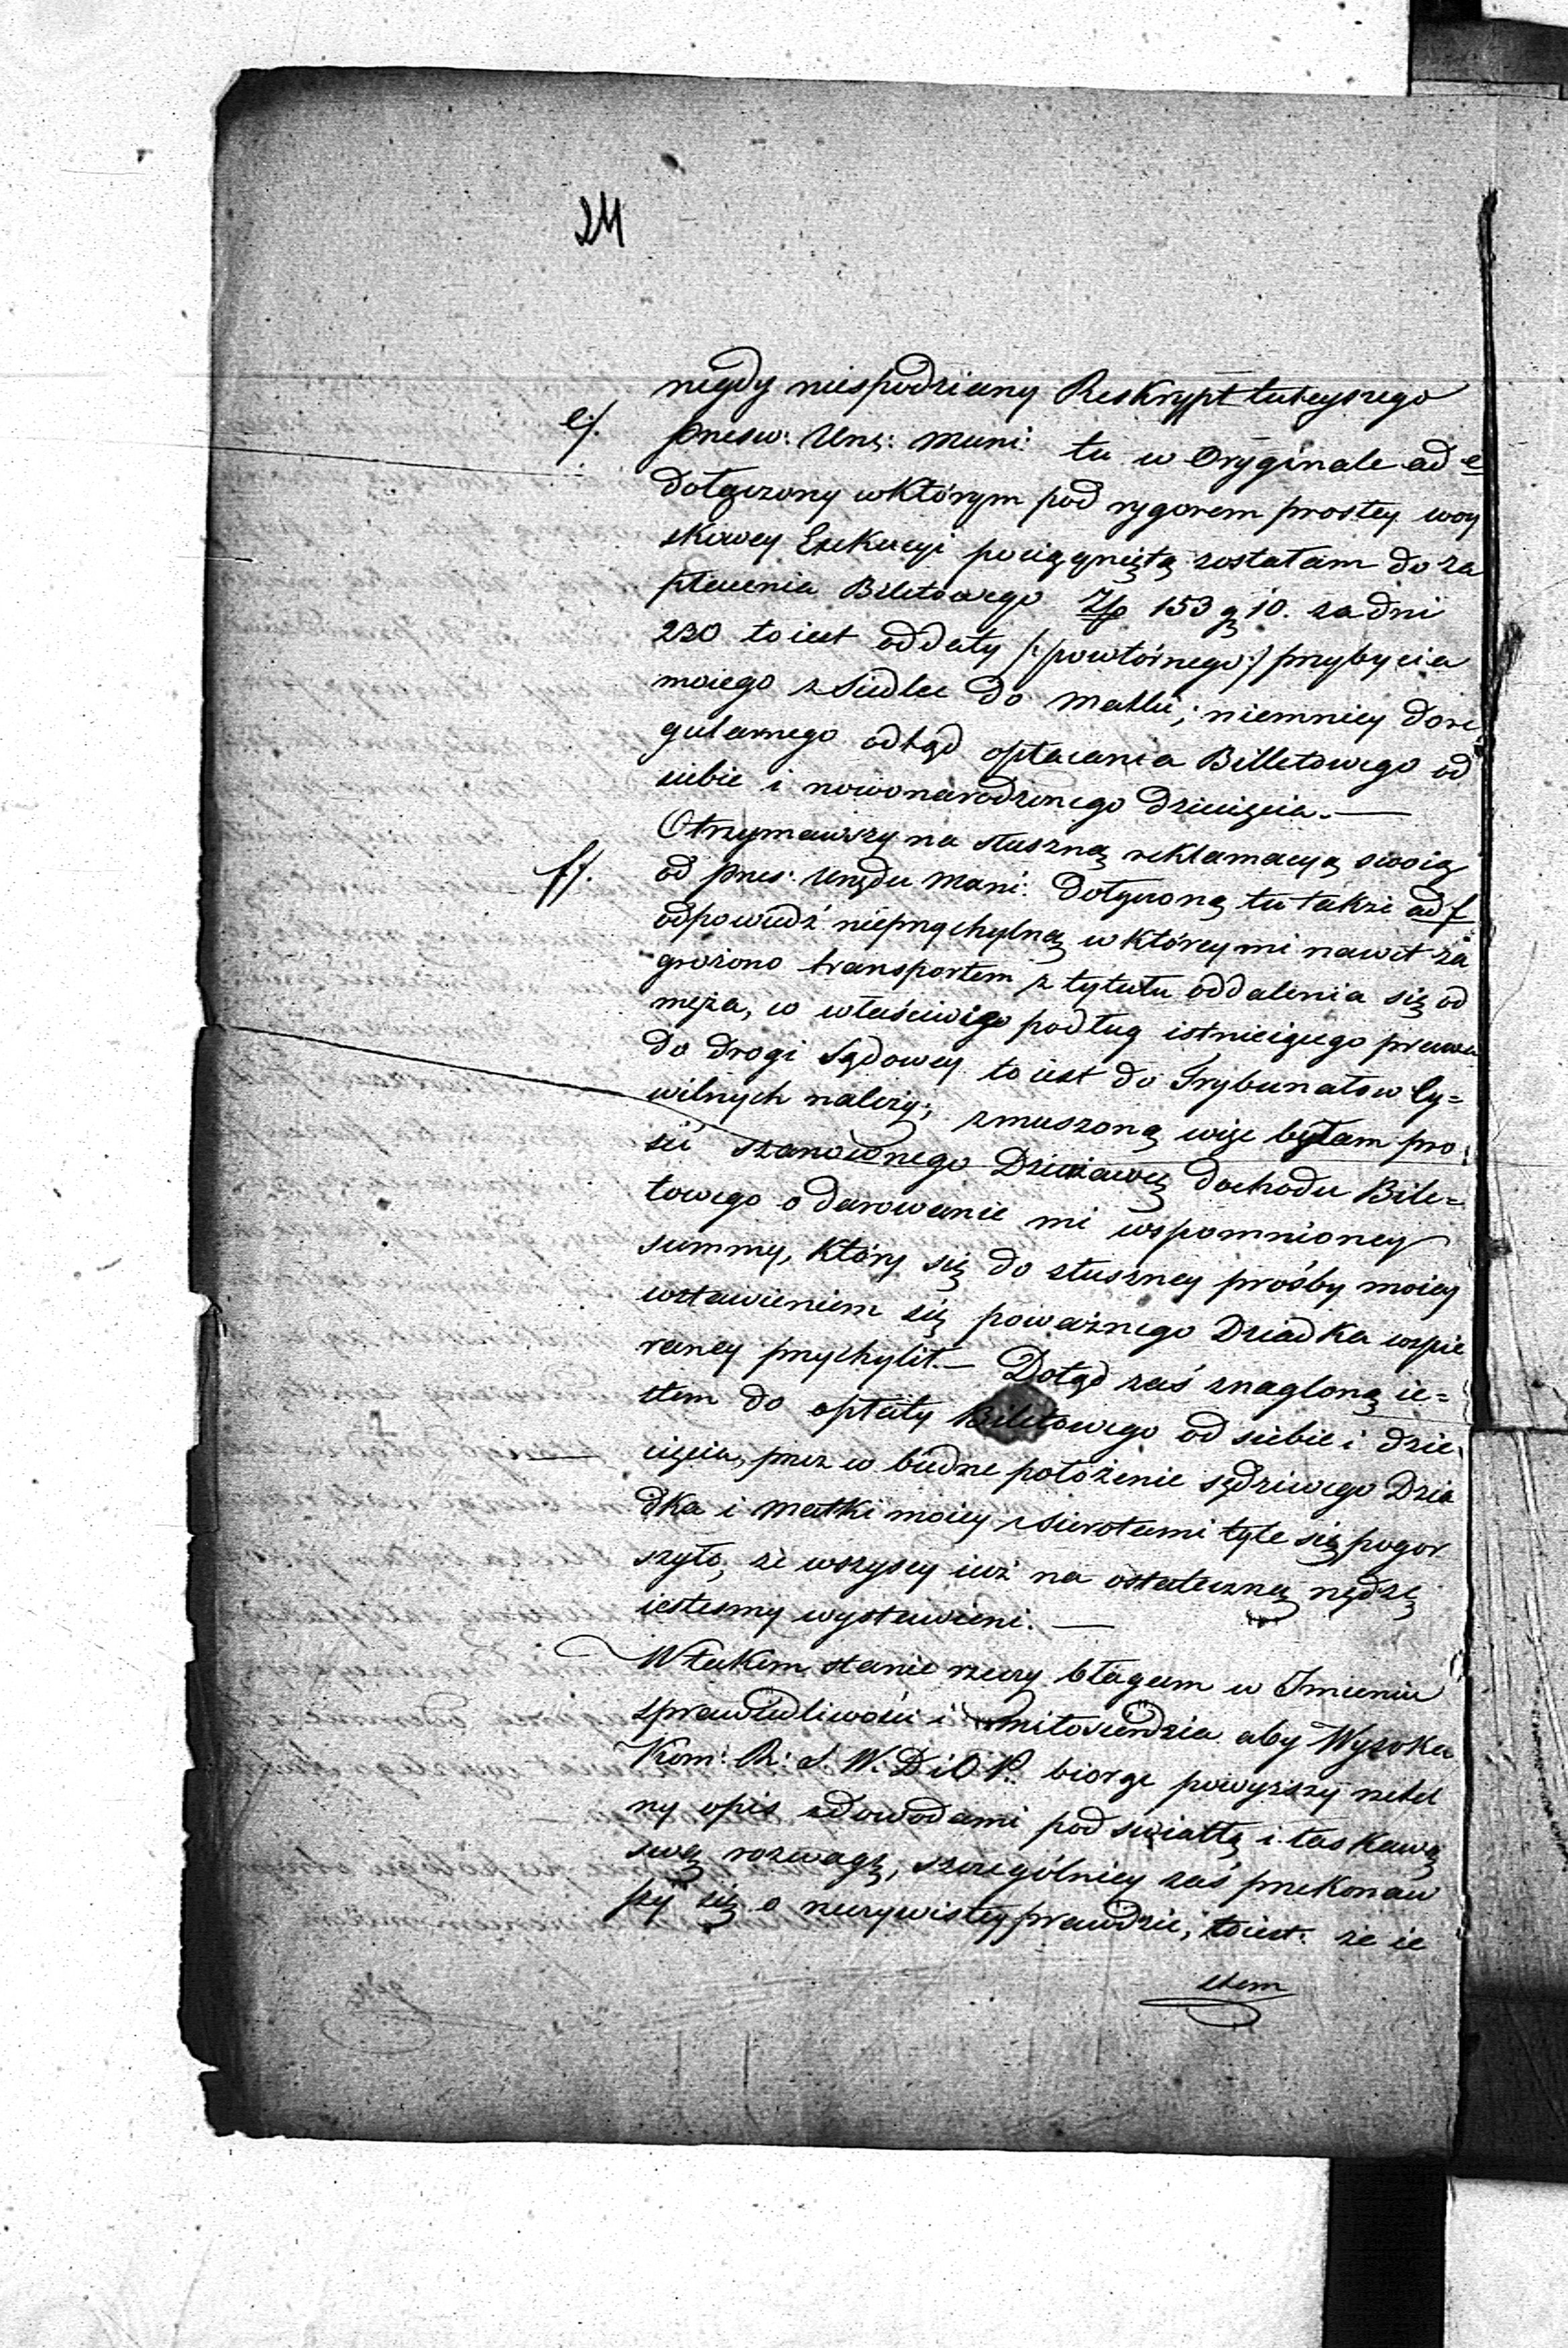 24
nigdy niespodziany Reskrypt tuteyszego
e/. Przesw: Urzę: Muni: tu w Oryginale ad e
dołączony w którym pod rygorem prostey woy
skowey Exekucyi pociągniętą zostałam do za
płacenia Biletowego Złp 153 g 10. za dni
230 to iest od daty /: powtórnego :/ przybycia
moiego z Siedlec do Matki; niemniey do re
gularnego odtąd opłacania Billetowego od
siebie i nowonarodzonego dziecięcia. —
Otrzymawszy na słuszną reklamacyą swoią
f/. od Przes: Urzędu Muni: dołączoną tu także ad f
odpowiedź nieprzychylną w którey mi nawet za
grożono transportem z tytułu oddalenia się od
męża, co właściwie podług istnieiącego prawa
do drogi Sądowey to iest do Trybunałow Cy=
wilnych należy; zmuszoną więc byłam pro
sić szanownego Dzierżawcę dochodu Bile=
towego o darowanie mi wspomnioney
summy, który się do słuszney prośby moiey
wstawieniem się poważnego Dziadka wspie
raney przychylił. — Dotąd zaś znagloną ie=
stem do opłaty Biletowego od siebie i dzie
cięcia, przez co biedne położenie sędziwego Dzia
dka i Matki moiey z sierotami tyle się pogor
szyło, że wszyscy iuż na ostateczną nędzę
iestesmy wystawieni. —
W takim stanie rzeczy błagam w Imieniu
sprawiedliwości i miłosierdzia aby Wysoka
Kom: R: S. W. D i O P. biorąc powyższy rzetel
ny opis z dowodami pod światłą i łaskawą
swą rozwagę, szczególniey zaś przekonaw
szy się o rzeczywistey prawdzie, to iest: że ie
stem